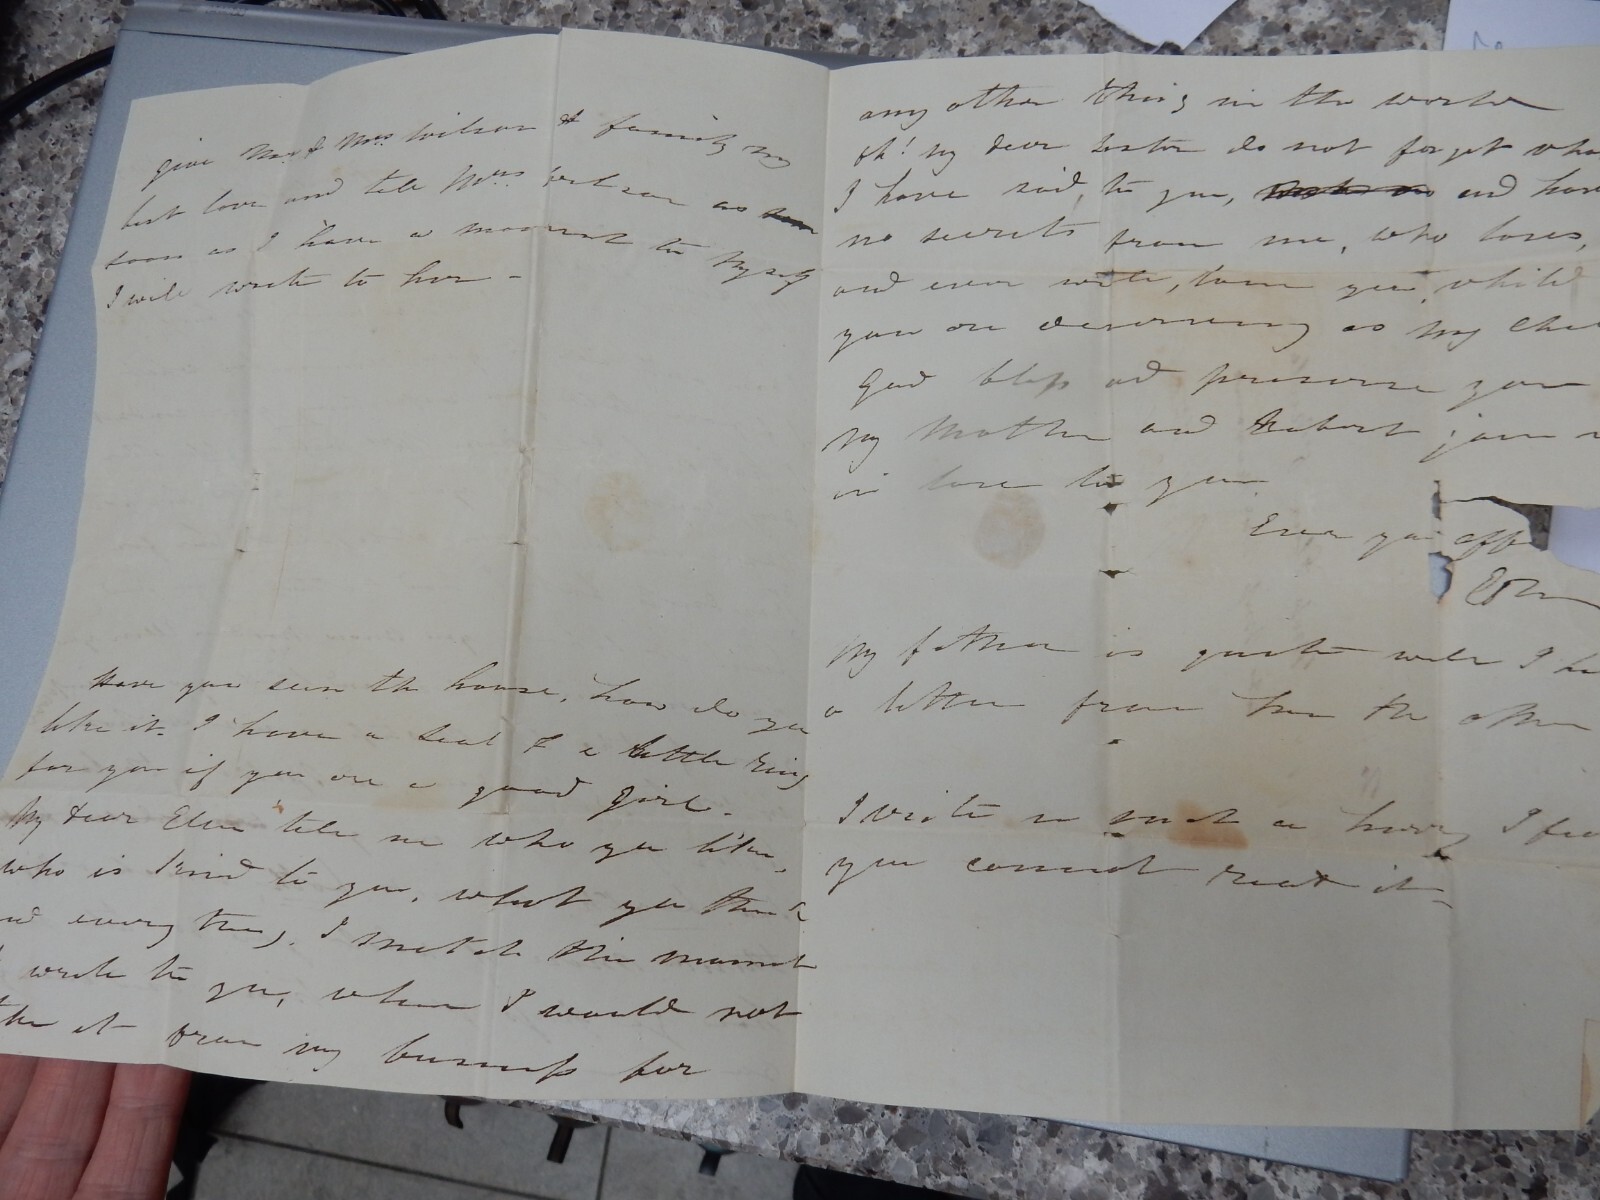 give Mr & Mrs. Wilson & family my
best love and tell Mrs. Wilson as
soon as I have a moment to myself
I will write to her -
Have you seen the house, how do you
like it. I have a seal & a little ring
for you if you are a good girl.
My dear Ellen tell me who you like,
who is kind to you, what you think
and every thing. I snatch this moment
to write to you, when I would not
take it from my business for
any other thing in the world
Oh! my dear Sister do not forget wha
I have said, to you, and have
no secrets from me, who loves,
and ever will, love you, whilst
you are deserving as my
God bless and preserve you
My Mother and Robert join
in love to you
Ever your aff
My father is quite well I ha
a letter from him the other
I write in such a hurry I fea
you cannot read it -